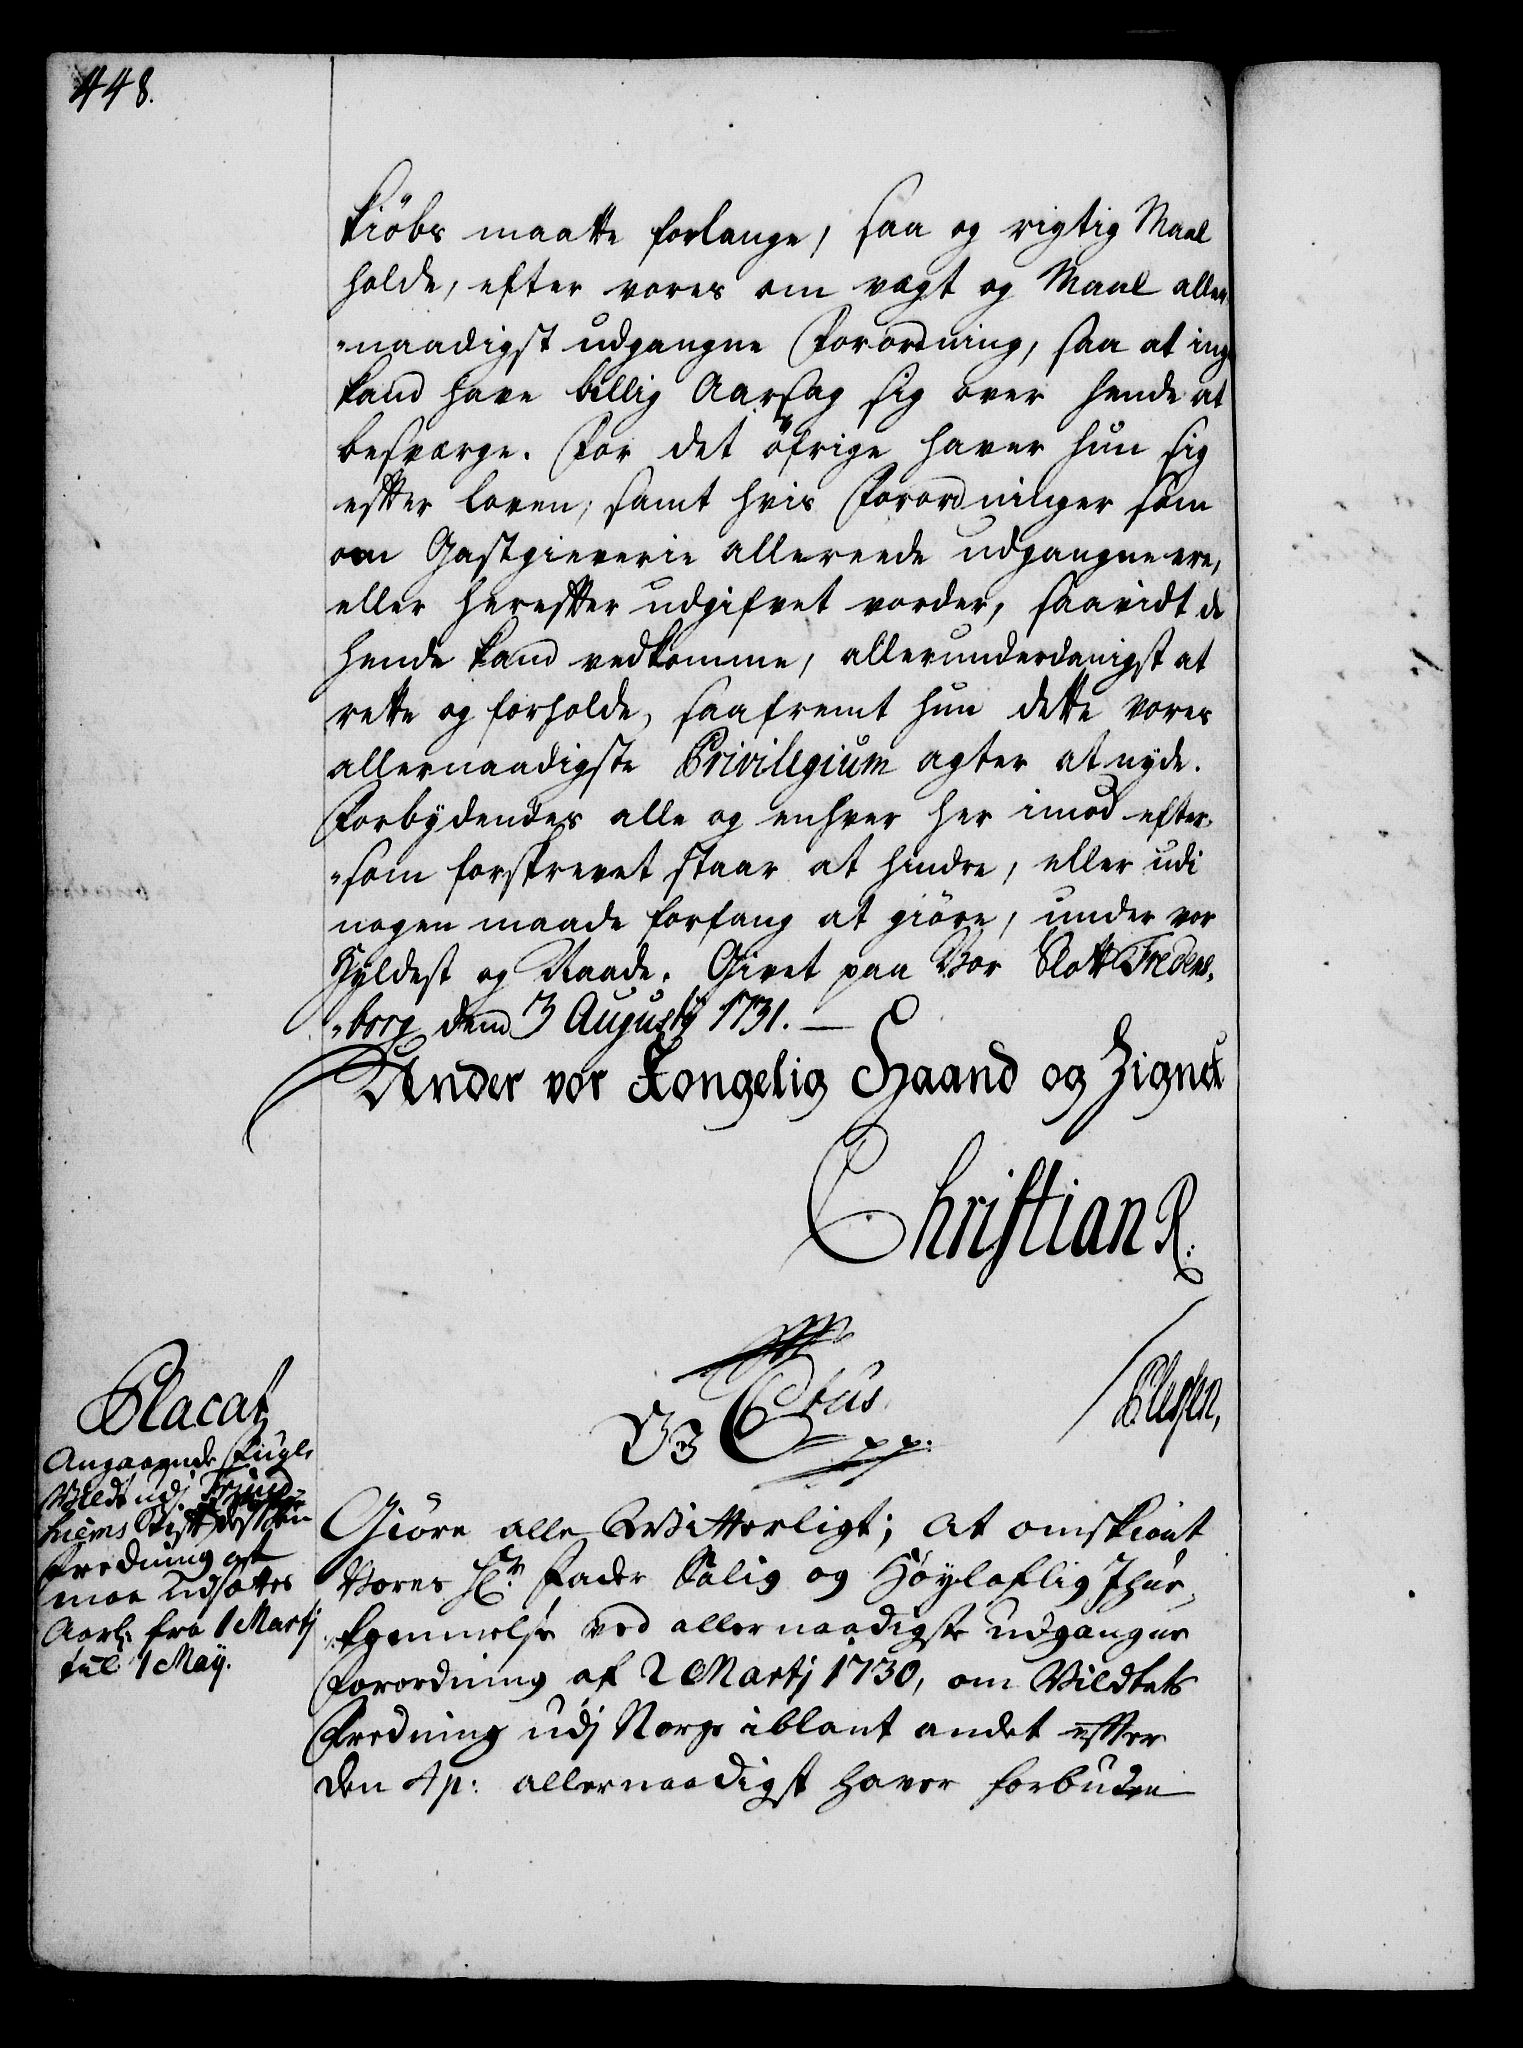 448.
Kiöbs maatte forlange, saa og rigtig Maal
holde, efter vores om vægt og Maal aller,,
,,naadigst udgangne Forordning, saa at ing
kand have billig Aarsag sig over hende at
besværge. For det öfrige haver hun sig
effter loven, samt hvis Forordninger som
om Gastgieverie allereede udgangne ere,
eller hereffter udgifvet vorder, saavidt de
hende kand vedkomme, allerunderdanigst at
rette og forholde, saafremt hun dette vores
allernaadigste Privilegium agter at nyde.
Forbydendes alle og enhver her imod efter,,
,,som forskrevet staar at hindre, eller udi
nogen maade forfang at giöre, under vor
Hyldest og Naade. Givet paa Vor Slott Fridens,,
,,borg dend 3 Augustij 1731. —
Under vor Kongelig Haand og Zignet
Christian R.
/Plessen,
Placat,
Angaaende Fugle
Vildt udj Trund,,
hiems Stift dessen
Fredning at
maa udsættes
Aarl: fra 1 Martj
til 1 May.
V3 C6tus.
pp.
Giöre alle Witterligt; At omskiönt
Vores Hr. Fader Salig og Höyloflig Ihu,,
,,kommelse ved allernaadigste udgangne
Forordning af 2 Martj 1730, om Vildtets
Fredning udj Norge iblant andet effter
den 4 p: allernaadigst haver forbuden